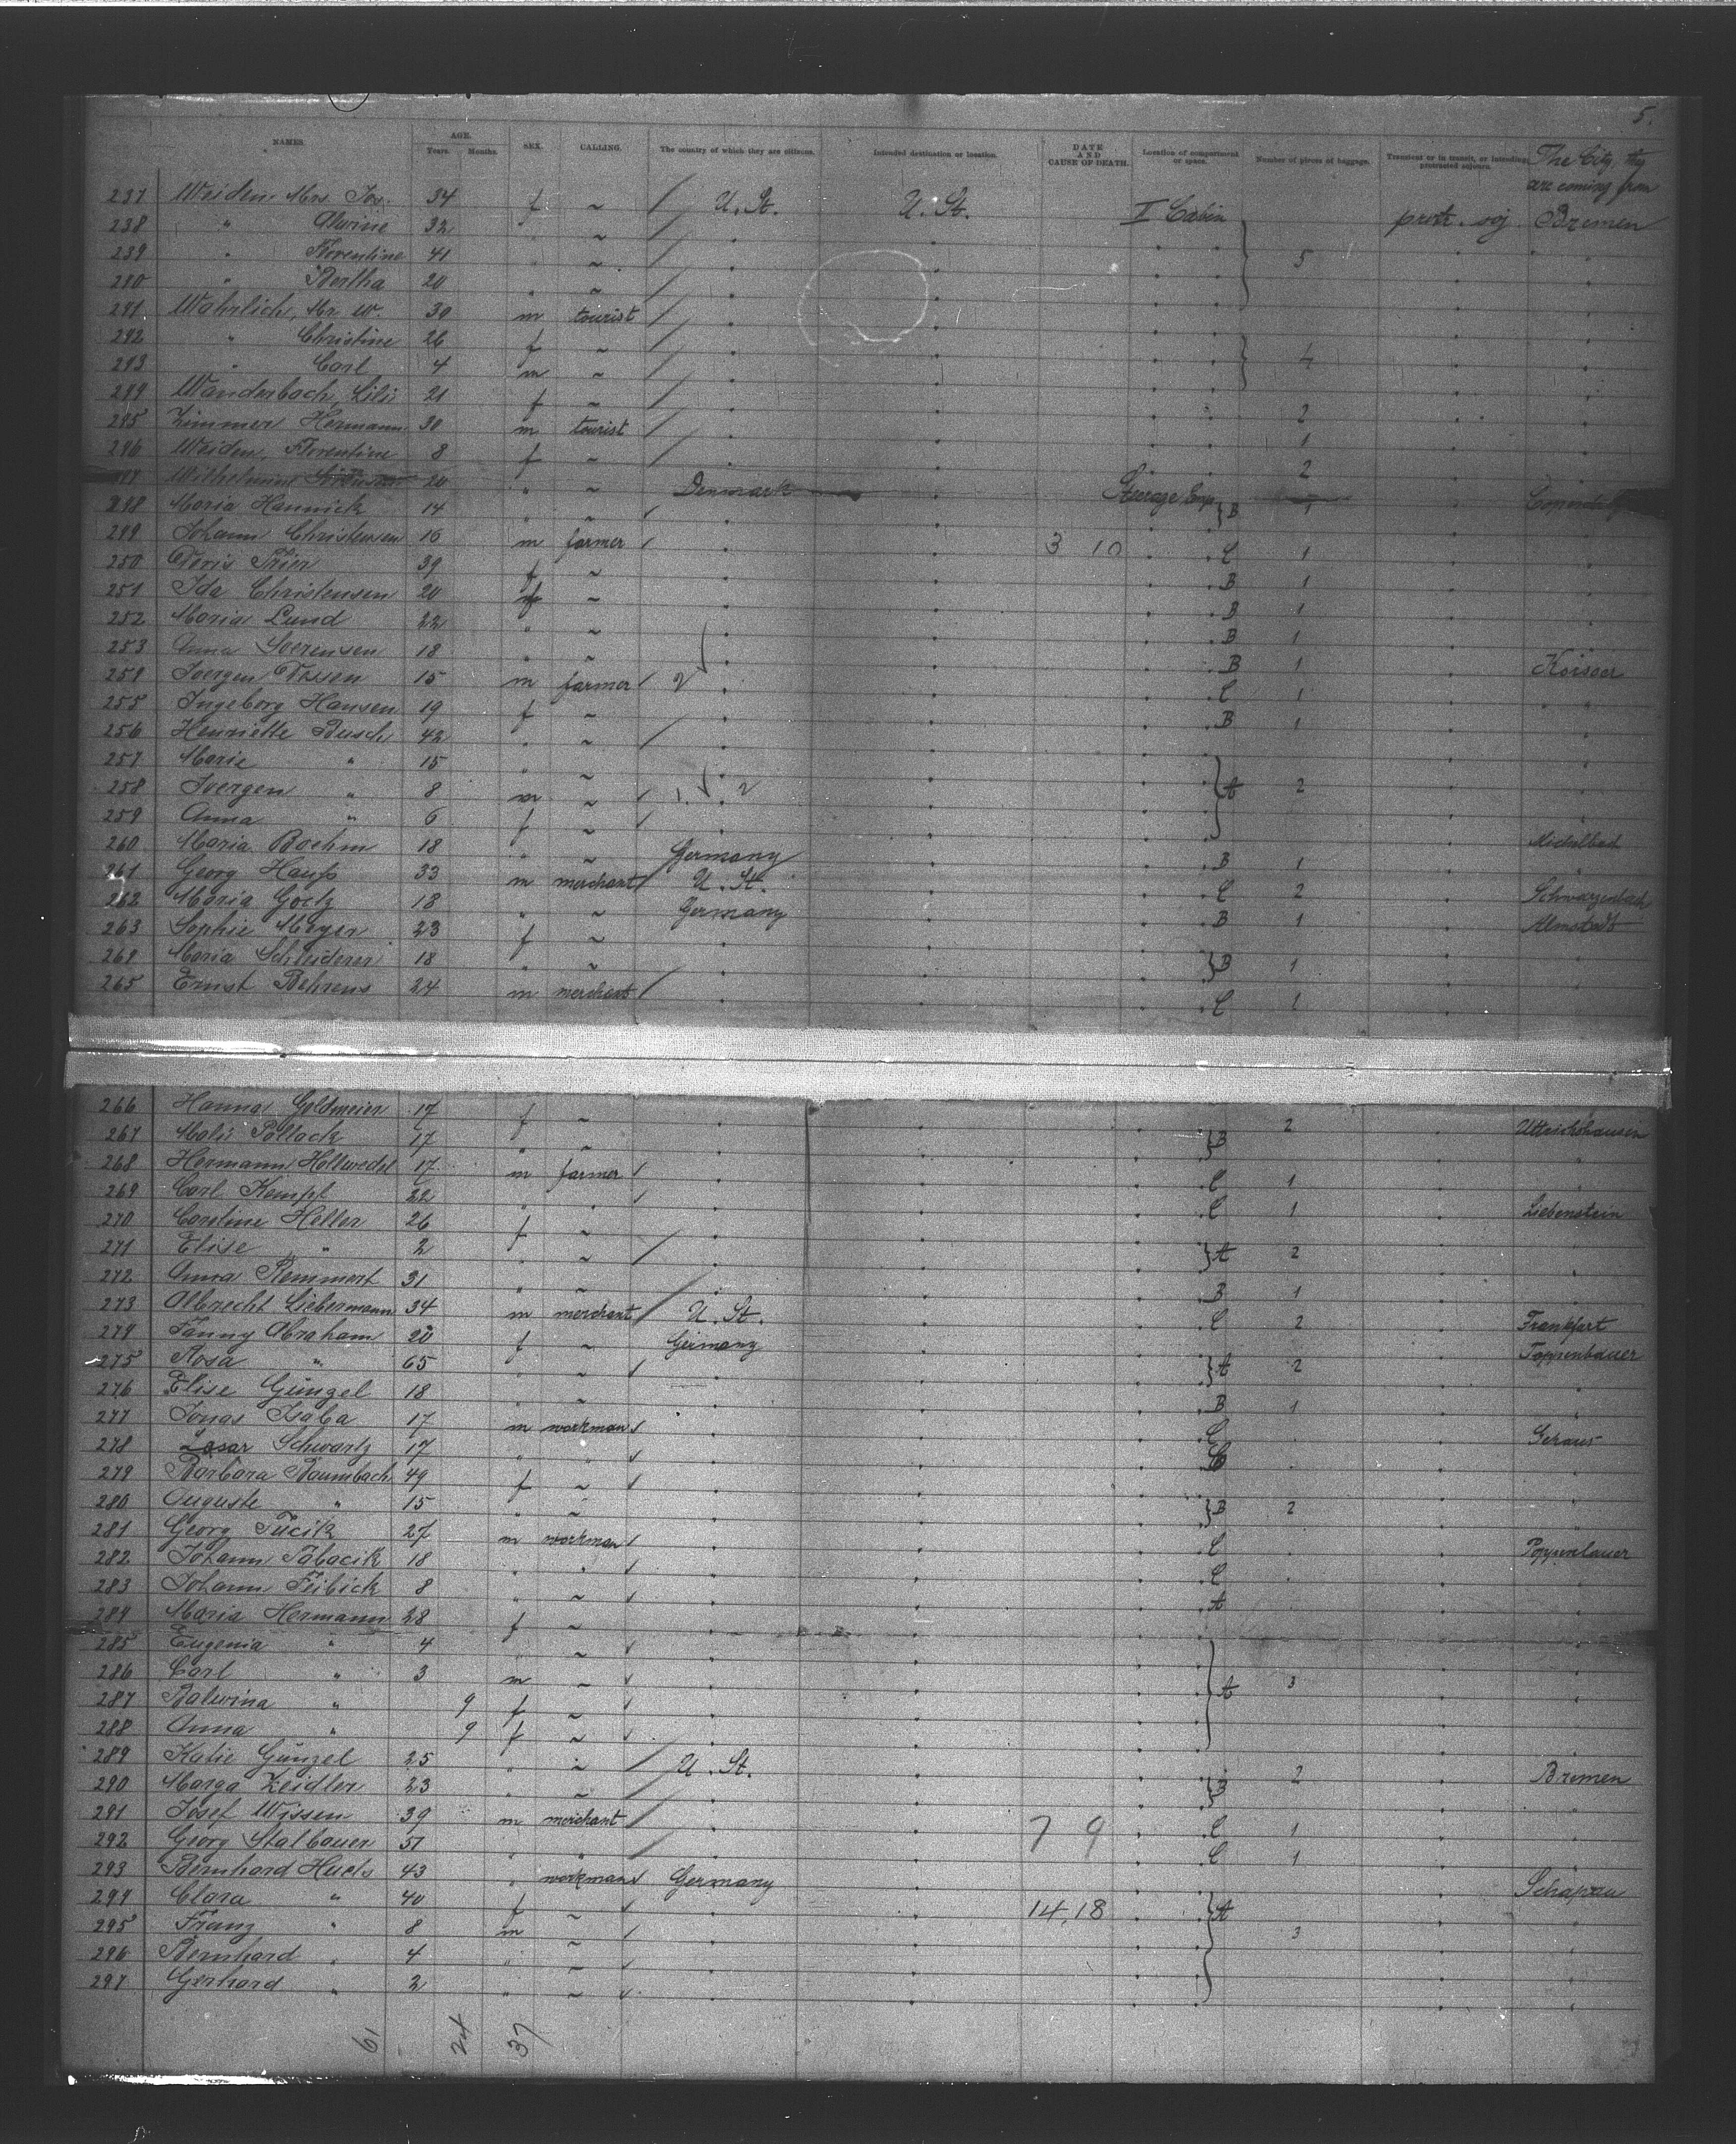 5.
NAMES. AGE. Years. Months. SEX. CALLING. The country of which they are citizens. Intended destination or location. DATE AND CAUSE OF DEATH. Location of compartment or space. Number of pieces of baggage. Transient or in transit, or intending protracted sojourn. The City they are coming from
237 Weiden Mrs. Jos. 34 f ~ / U. St. U. St. II Cabin protr. soj Bremen
238 " Alwine 32 " ~ /
239 " Florentine 41 " ~ / 5
240 " Bertha 20 " ~ /
241 Wahrlich, Mr. W. 30 m tourist /
242 " Christine 26 f ~ /
243 " Carl 4 m ~ / 4
244 Wanderbach, Lili 21 f ~ / 2
245 Zimmer Hermann 30 m tourist / 1
246 Weiden, Florentine 8 f ~ / 2
Wilhelmine 20 " ~ Denmark Steerage
248 Maria Hannick 14 " ~ B 1
249 Johann Christensen 16 m farmer 3 10 C 1
250 Trier 39 f ~ B 1
251 Ida Christensen 20 f ~ B 1
252 Maria Lund 22 " ~ B 1
253 Anna Soerensen 18 " ~ B 1 Korsoer
254 Joergen 15 m farmer 2 C 1
255 Ingeborg Hansen 19 f ~ B 1
256 Henriette Busch 42 " ~ /
257 Marie " 15 " ~
258 Joergen " 8 m ~ 2 A 2
259 Anna " 6 f ~
260 Maria Boehm 18 " ~ Germany B 1 Michelbach
261 Georg Hauß 33 m merchant / U. St. C 2 "
262 Maria Goetz 18 " ~ Germany B 1 Schwarzenbach
263 Sophie Meyer 23 f ~ Almstedt
264 Maria Schleiderer 18 " ~ B 1
265 Ernst Behrens 24 m merchant / C 1
266 Hanna Goldmeier 17 f ~ 2 Uttrichshausen
267 Mali Pollack 17 " ~ B
268 Hermann Hellwedel 17 m farmer C 1
269 Carl Kempf 22 " " C 1 Liebenstein
270 Caroline Heller 26 f ~
271 Elise " 2 " ~ / A 2
272 Anna Remmert 31 " ~ B 1
273 Albrecht Liebermann 34 m merchant / U. St. C 2 Frankfurt
274 Fanny Abraham 20 f ~ Germany
275 Rosa " 65 " ~ A 2
276 Elise Güngel 18 " ~ B 1
277 Jonas Isaba 17 m workman C
278 Schwartz 17 " " C
279 Barbara Baumbach 49 f ~
280 Auguste " 15 " ~ B 2
281 Georg Tucik 27 m workman C Poppenlauer
282 Johann Tabacik 18 " " C
283 Johann Feibick 8 " ~ A
284 Maria Hermann 28 f ~
285 Eugenia " 4 " ~
286 Carl " 3 m ~ A 3
287 Balwina " 9 f ~
288 Anna " 9 f ~
289 Katie Güngel 25 " ~ / U. St. 2 Bremen
290 Marga Zeidler 23 " ~ / B
291 Josef Wissen 39 m merchant / 7 9 C 1
292 Georg Stalbauer 51 " " / C 1
293 Bernhard Huels 43 " workman Germany
294 Clara " 40 f ~ 14,18 A
295 Franz " 8 m ~ 3
296 Bernhard " 4 " ~
297 Gerhard " 2 " ~
61 24 37